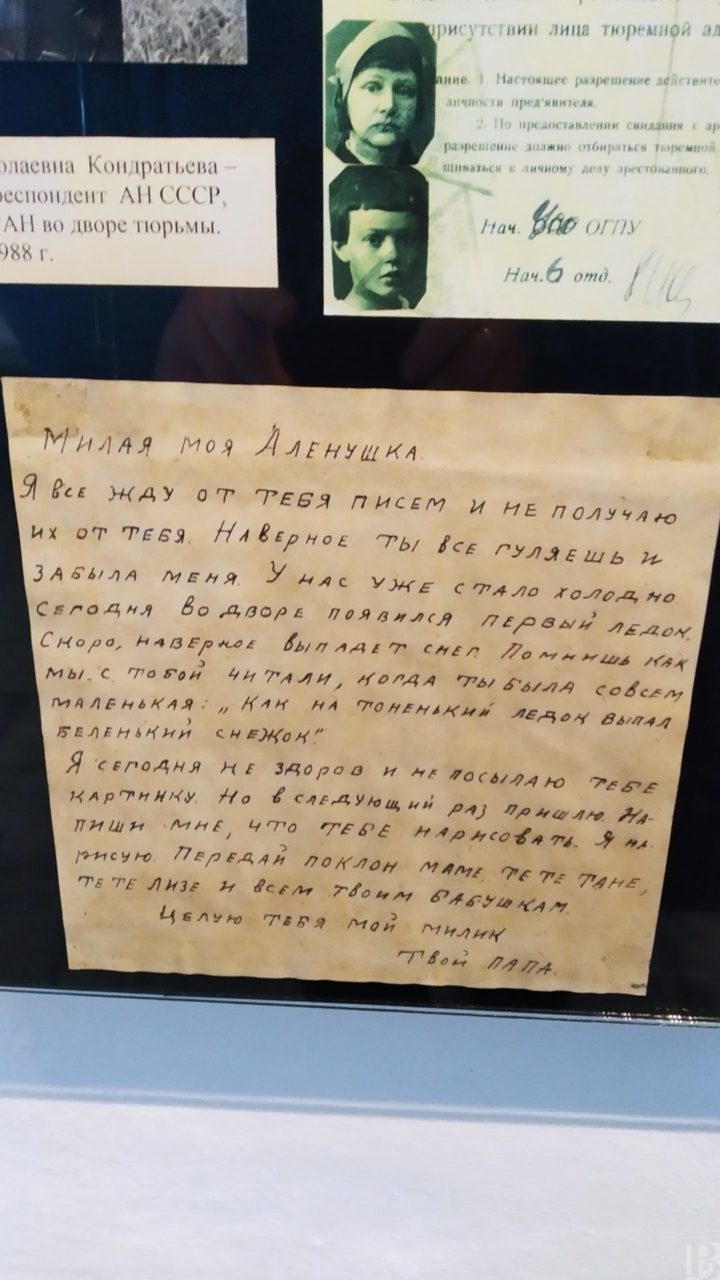 присутствии лица тюремной
1. Настоящее разрешение
личности пред'явителя.
2. По предоставлении свидания с
разрешение должно отбираться тюремной
шиваться к личному делу арестованного.
Нач. ОГПУ
Нач. 6 отд.
олаевна Кондратьева –
респондент АН СССР,
АН во дворе тюрьмы.
988 г.
Милая моя Аленушка.
Я все жду от тебя писем и не получаю
их от тебя. Наверное ты все гуляешь и
забыла меня. У нас уже стало холодно
сегодня во дворе появился первый ледок.
Скоро, наверное выпадет снег. Помнишь как
мы с тобой читали, когда ты была совсем
маленькая: „Как на тоненький ледок выпал
беленький снежок."
Я сегодня не здоров и не посылаю тебе
картинку. Но в следующий раз пришлю. На-
пиши мне, что тебе нарисовать. Я на-
рисую. Передай поклон маме, тете Тане,
тете Лизе и всем твоим бабушкам.
Целую тебя мой милик
Твой папа.